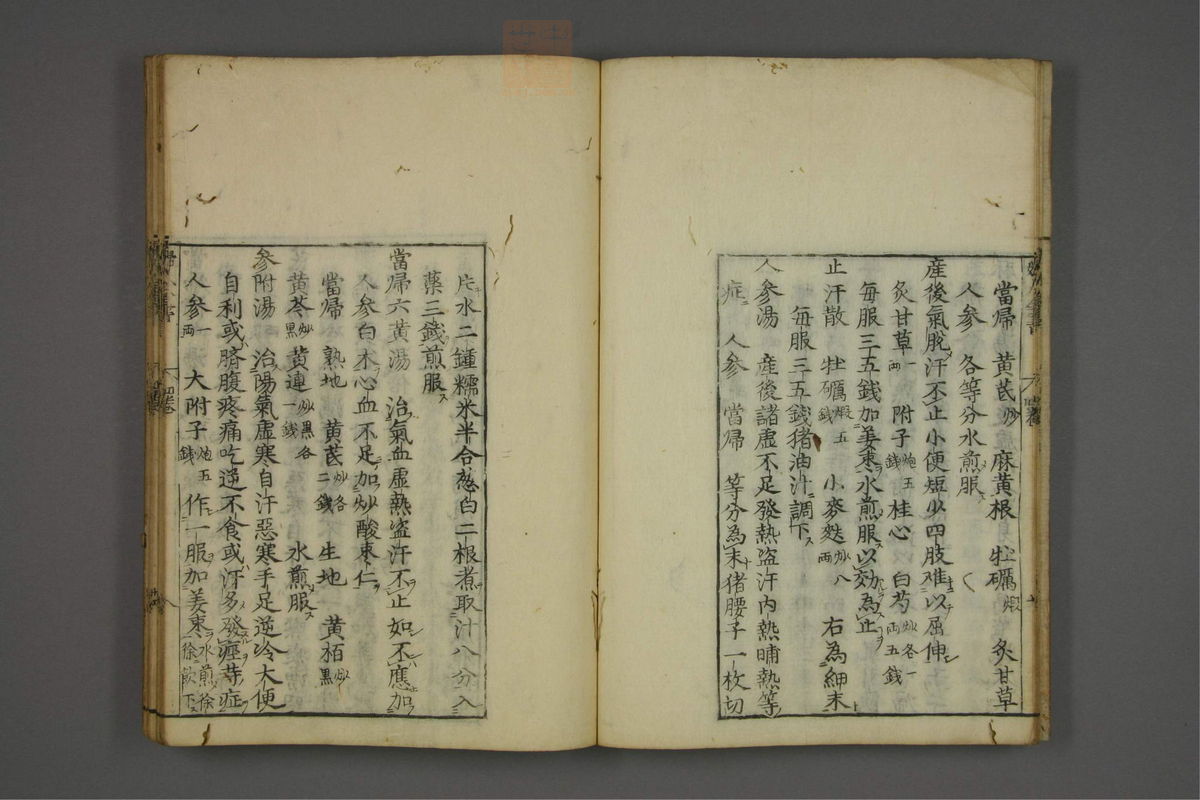 當帰　黄芪炒　麻黄根　牡礪煅　炙甘草
人参　各等分水煎服
産後氣脫汗不止小便短少四肢难以屈伸
炙甘草一両　附子炮五錢　桂心　白芍炒各一両五錢
毎服三五錢加姜枣水煎服以効為止
止汗散　牡礪煅五錢　小麥麩炒八両　右為細末
毎服三五錢猪油汁調下
人参湯　産後諸虚不足發熱盗汗内熱晡熱等
症　人参　當帰　等分為末猪腰子一枚切
片水二鍾糯米半合葱白二根煮取汁八分入
薬三錢煎服
當帰六黄湯　治氣血虚熱盗汗不止如不應加
人参白术心血不足加炒酸枣仁
當帰　熟地　黄芪炒各二錢　生地　黄栢炒黒
黄芩炒黒　黄連炒黒各一錢　水煎服
参附湯　治陽氣虚寒自汗惡寒手足逆冷大便
自利或臍腹疼痛吃逆不食或汗多發痙䓁症
人参一両　大附子炮五錢　作一服加姜枣水煎徐徐飲下